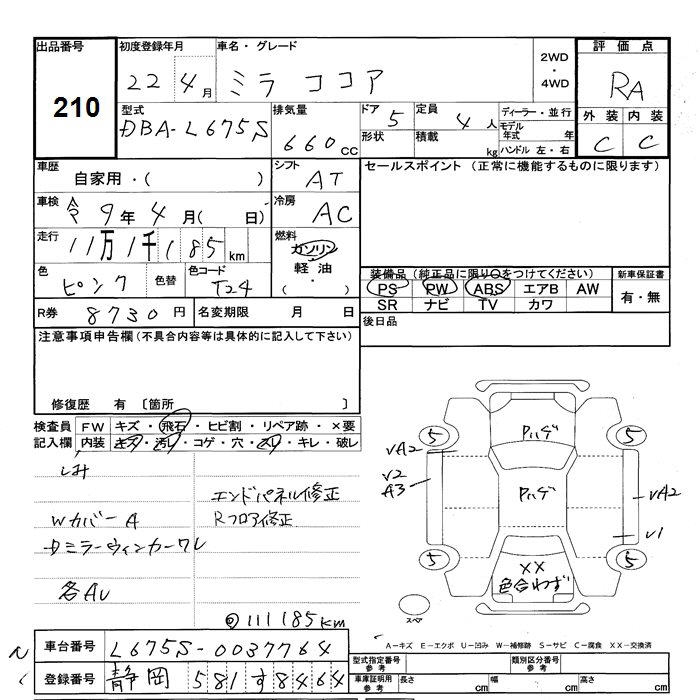 出品番号
210
初度登録年月
22 4月
車名・グレード
ミラ ココア
2WD
・
4WD
評価点
RA
型式
DBA-L675S
排気量
660cc
ドア 5
形状
定員 4人
積載 kg
ディーラー・並行
モデル年式 年
ハンドル 左・右
外装 内装
C C
車歴
自家用・( )
シフト
AT
セールスポイント (正常に機能するものに限ります)
車検 令9年4月( 日)
冷房
AC
走行
11万1千185km
燃料
ガソリン
軽油
( ・ )
色
ピンク
色替
色コード
T24
装備品 (純正品に限り○をつけてください)
PS PW ABS エアB AW
SR ナビ TV カワ
新車保証書
有・無
R券 8730円
名変期限 月 日
後日品
注意事項申告欄(不具合内容等は具体的に記入して下さい)
修復歴 有 〔箇所 〕
検査員
記入欄
FW キズ・飛石・ヒビ割・リペア跡・×要
内装 キズ・汚れ・コゲ・穴・スレ・キレ・破レ
しみ
エンドパネル修正
Wカバー A
Rフロア修正
ミラーウィンカーワレ
各AU
◎111185km
Pハゲ
Pハゲ
××
色合わず
5
5
5
5
vA2
v2
A3
vA2
v1
スペア
A−キズ E−エクボ U−凹み W−補修跡 S−サビ C−腐食 XX−交換済
車台番号 L675S-0037764
登録番号 静岡 581す8464
型式指定番号
参考
類別区分番号
参考
車庫証明用
参考
長さ cm
幅 cm
高さ cm